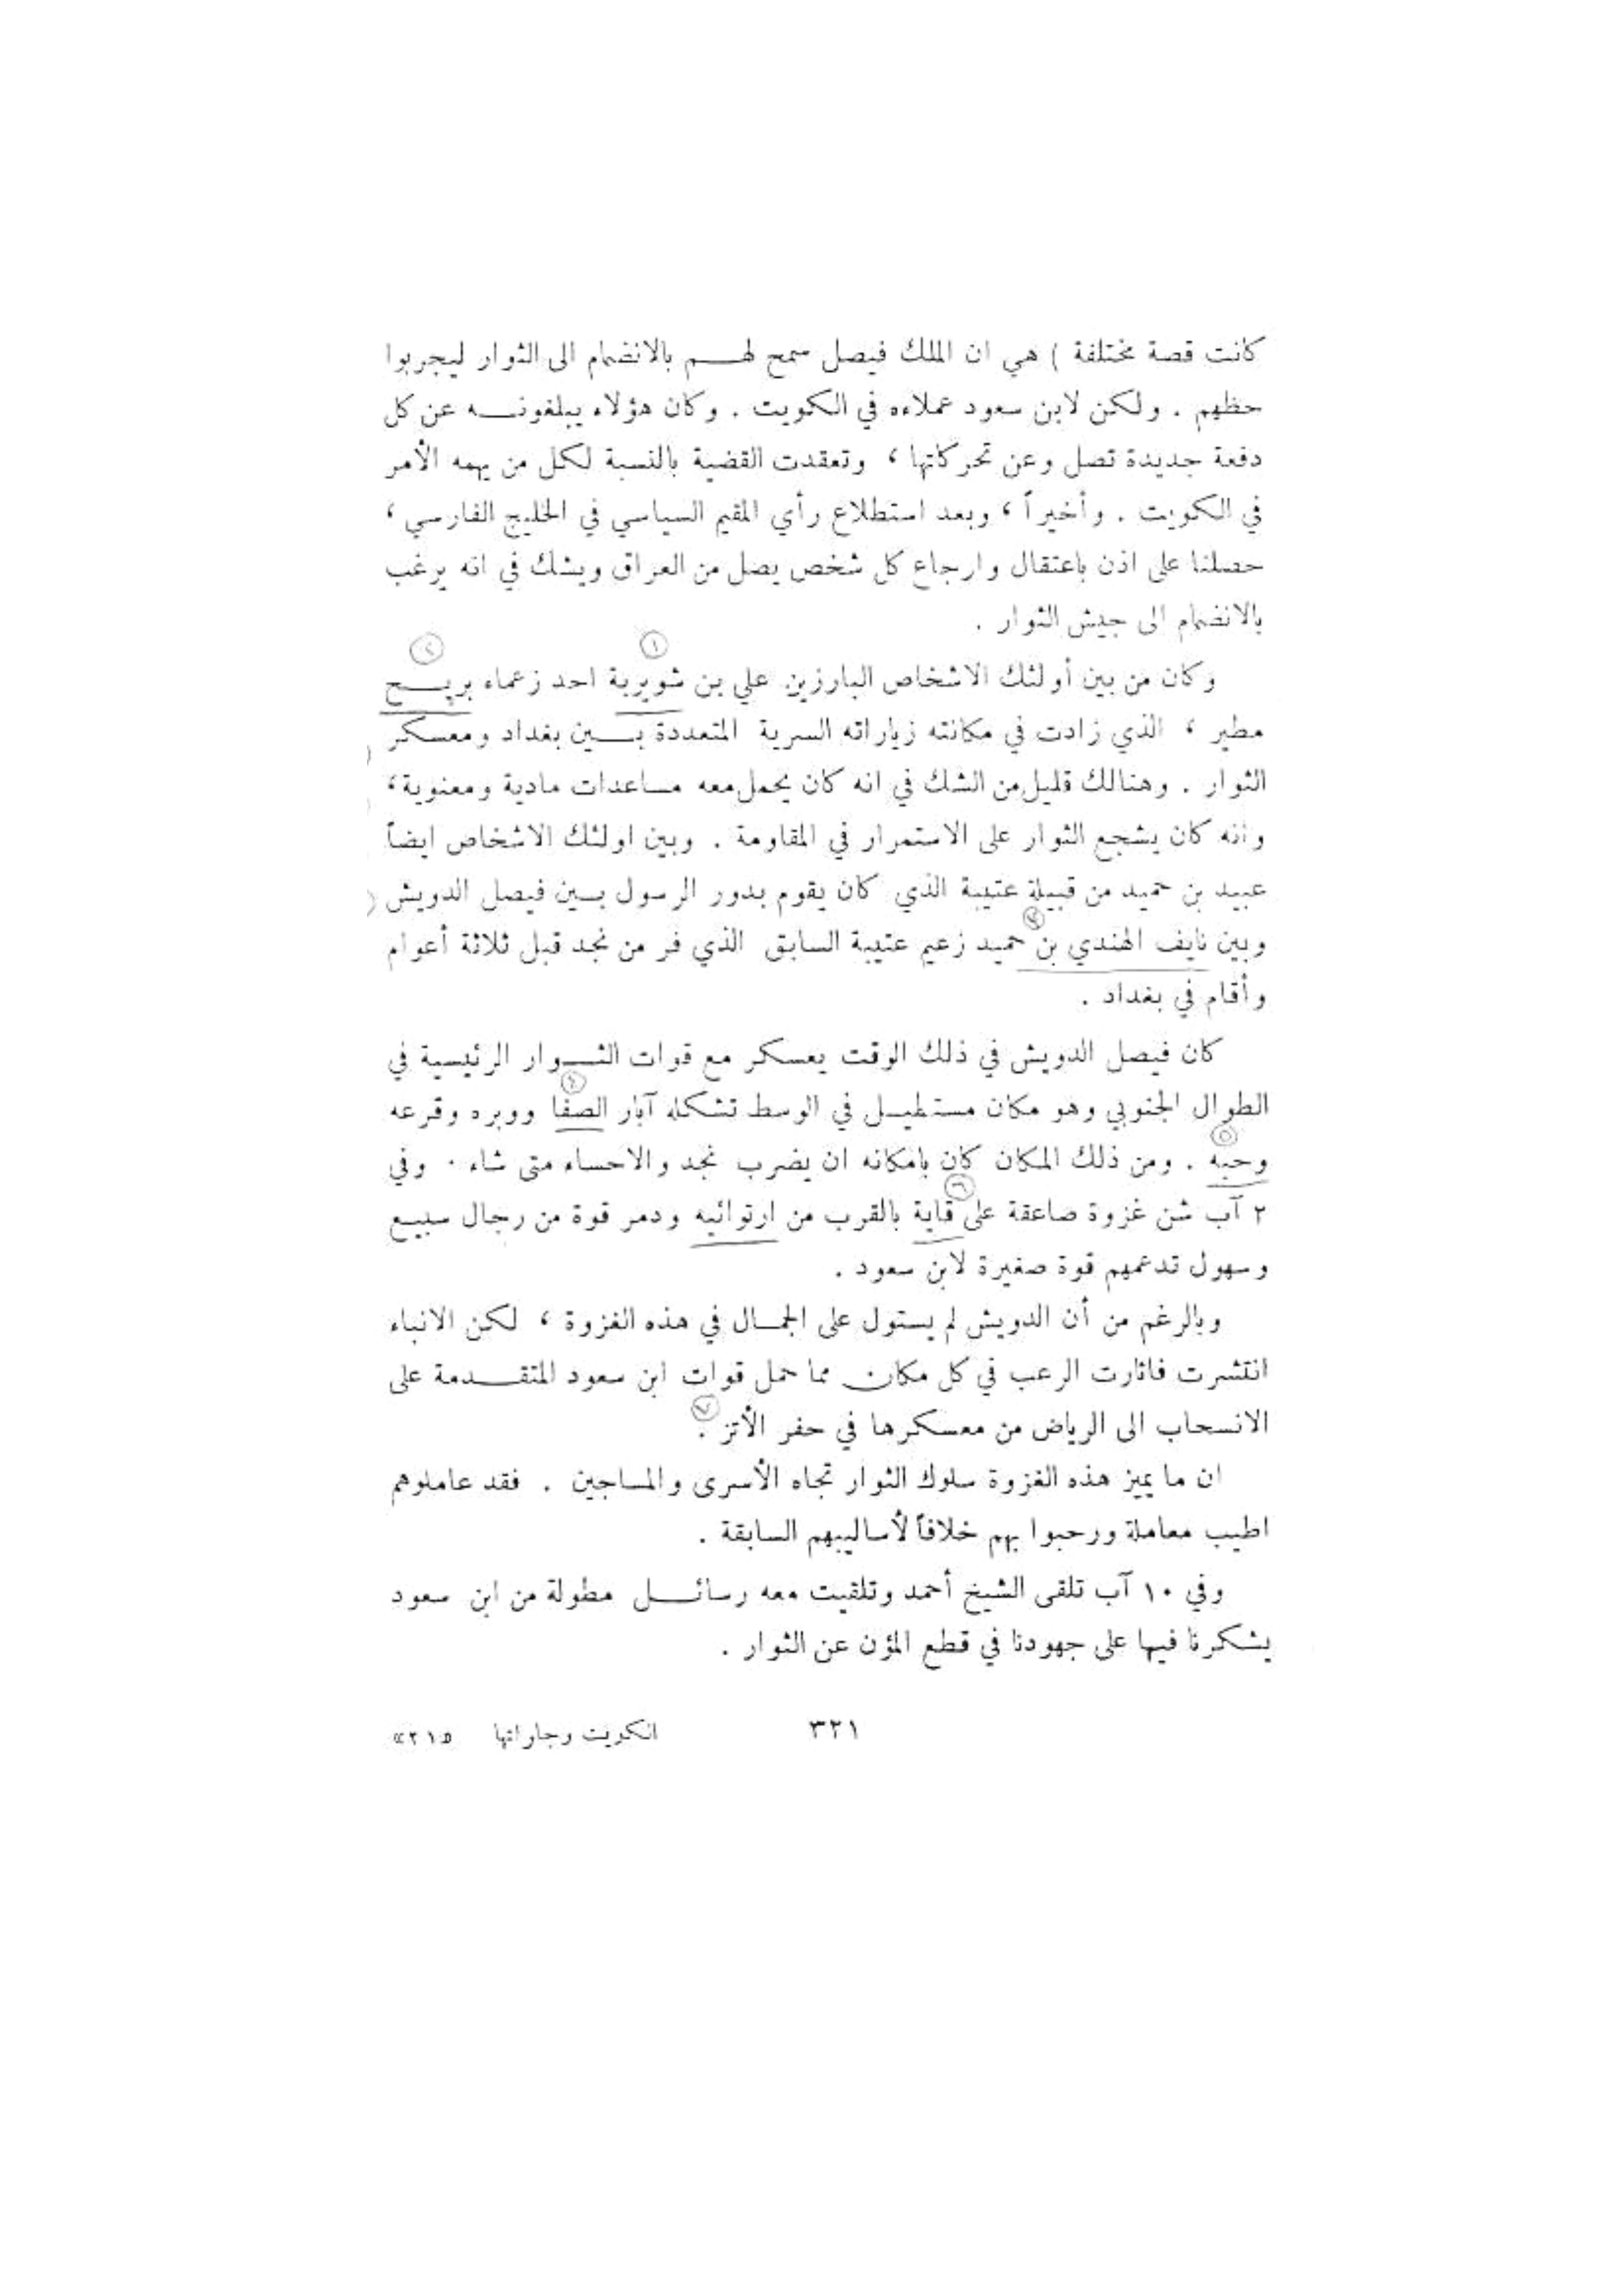 كانت قصة مختلفة ) هي ان الملك فيصل سمح لهم بالانضمام الى الثوار ليجربوا
حظهم . ولكن لابن سعود عملاءه في الكويت . وكان هؤلاء يبلغونه عن كل
دفعة جديدة تصل وعن تحركاتها ، وتعقدت القضية بالنسبة لكل من يهمه الأمر
في الكويت . وأخيراً ، وبعد استطلاع رأي المقيم السياسي في الخليج الفارسي ،
حصلنا على اذن باعتقال وارجاع كل شخص يصل من العراق ويشك في انه يرغب
بالانضمام الى جيش الثوار .
١ ٢
وكان من بين أولئك الاشخاص البارزين علي بن شويربة احد زعماء بريح
مطير ، الذي زادت في مكانته زياراته السرية المتعددة بين بغداد ومعسكر
الثوار . وهنالك قليل من الشك في انه كان يحمل معه مساعدات مادية ومعنوية ،
وانه كان يشجع الثوار على الاستمرار في المقاومة . وبين اولئك الاشخاص ايضاً
عبيد بن حميد من قبيلة عتيبة الذي كان يقوم بدور الرسول بين فيصل الدويش
٣
وبين نايف الهندي بن حميد زعيم عتيبة السابق الذي فر من نجد قبل ثلاثة أعوام
وأقام في بغداد .
كان فيصل الدويش في ذلك الوقت يعسكر مع قوات الثوار الرئيسية في
٤
الطوال الجنوبي وهو مكان مستطيل في الوسط تشكله آبار الصفا ووبره وقرعه
٥
وحبه . ومن ذلك المكان كان بامكانه ان يضرب نجد والاحساء متى شاء . وفي
٦
٢ آب شن غزوة صاعقة على قاية بالقرب من ارتوائيه ودمر قوة من رجال سبيع
وسهول تدعمهم قوة صغيرة لابن سعود .
وبالرغم من أن الدويش لم يستول على الجمال في هذه الغزوة ، لكن الانباء
انتشرت فاثارت الرعب في كل مكان مما حمل قوات ابن سعود المتقدمة على
٧
الانسحاب الى الرياض من معسكرها في حفر الأتز .
ان ما يميز هذه الغزوة سلوك الثوار تجاه الأسرى والمساجين . فقد عاملوهم
اطيب معاملة ورحبوا بهم خلافاً لأساليبهم السابقة .
وفي ١٠ آب تلقى الشيخ أحمد وتلقيت معه رسائل مطولة من ابن سعود
يشكرنا فيها على جهودنا في قطع المؤن عن الثوار .
٣٢١ الكويت وجاراتها «٢١»